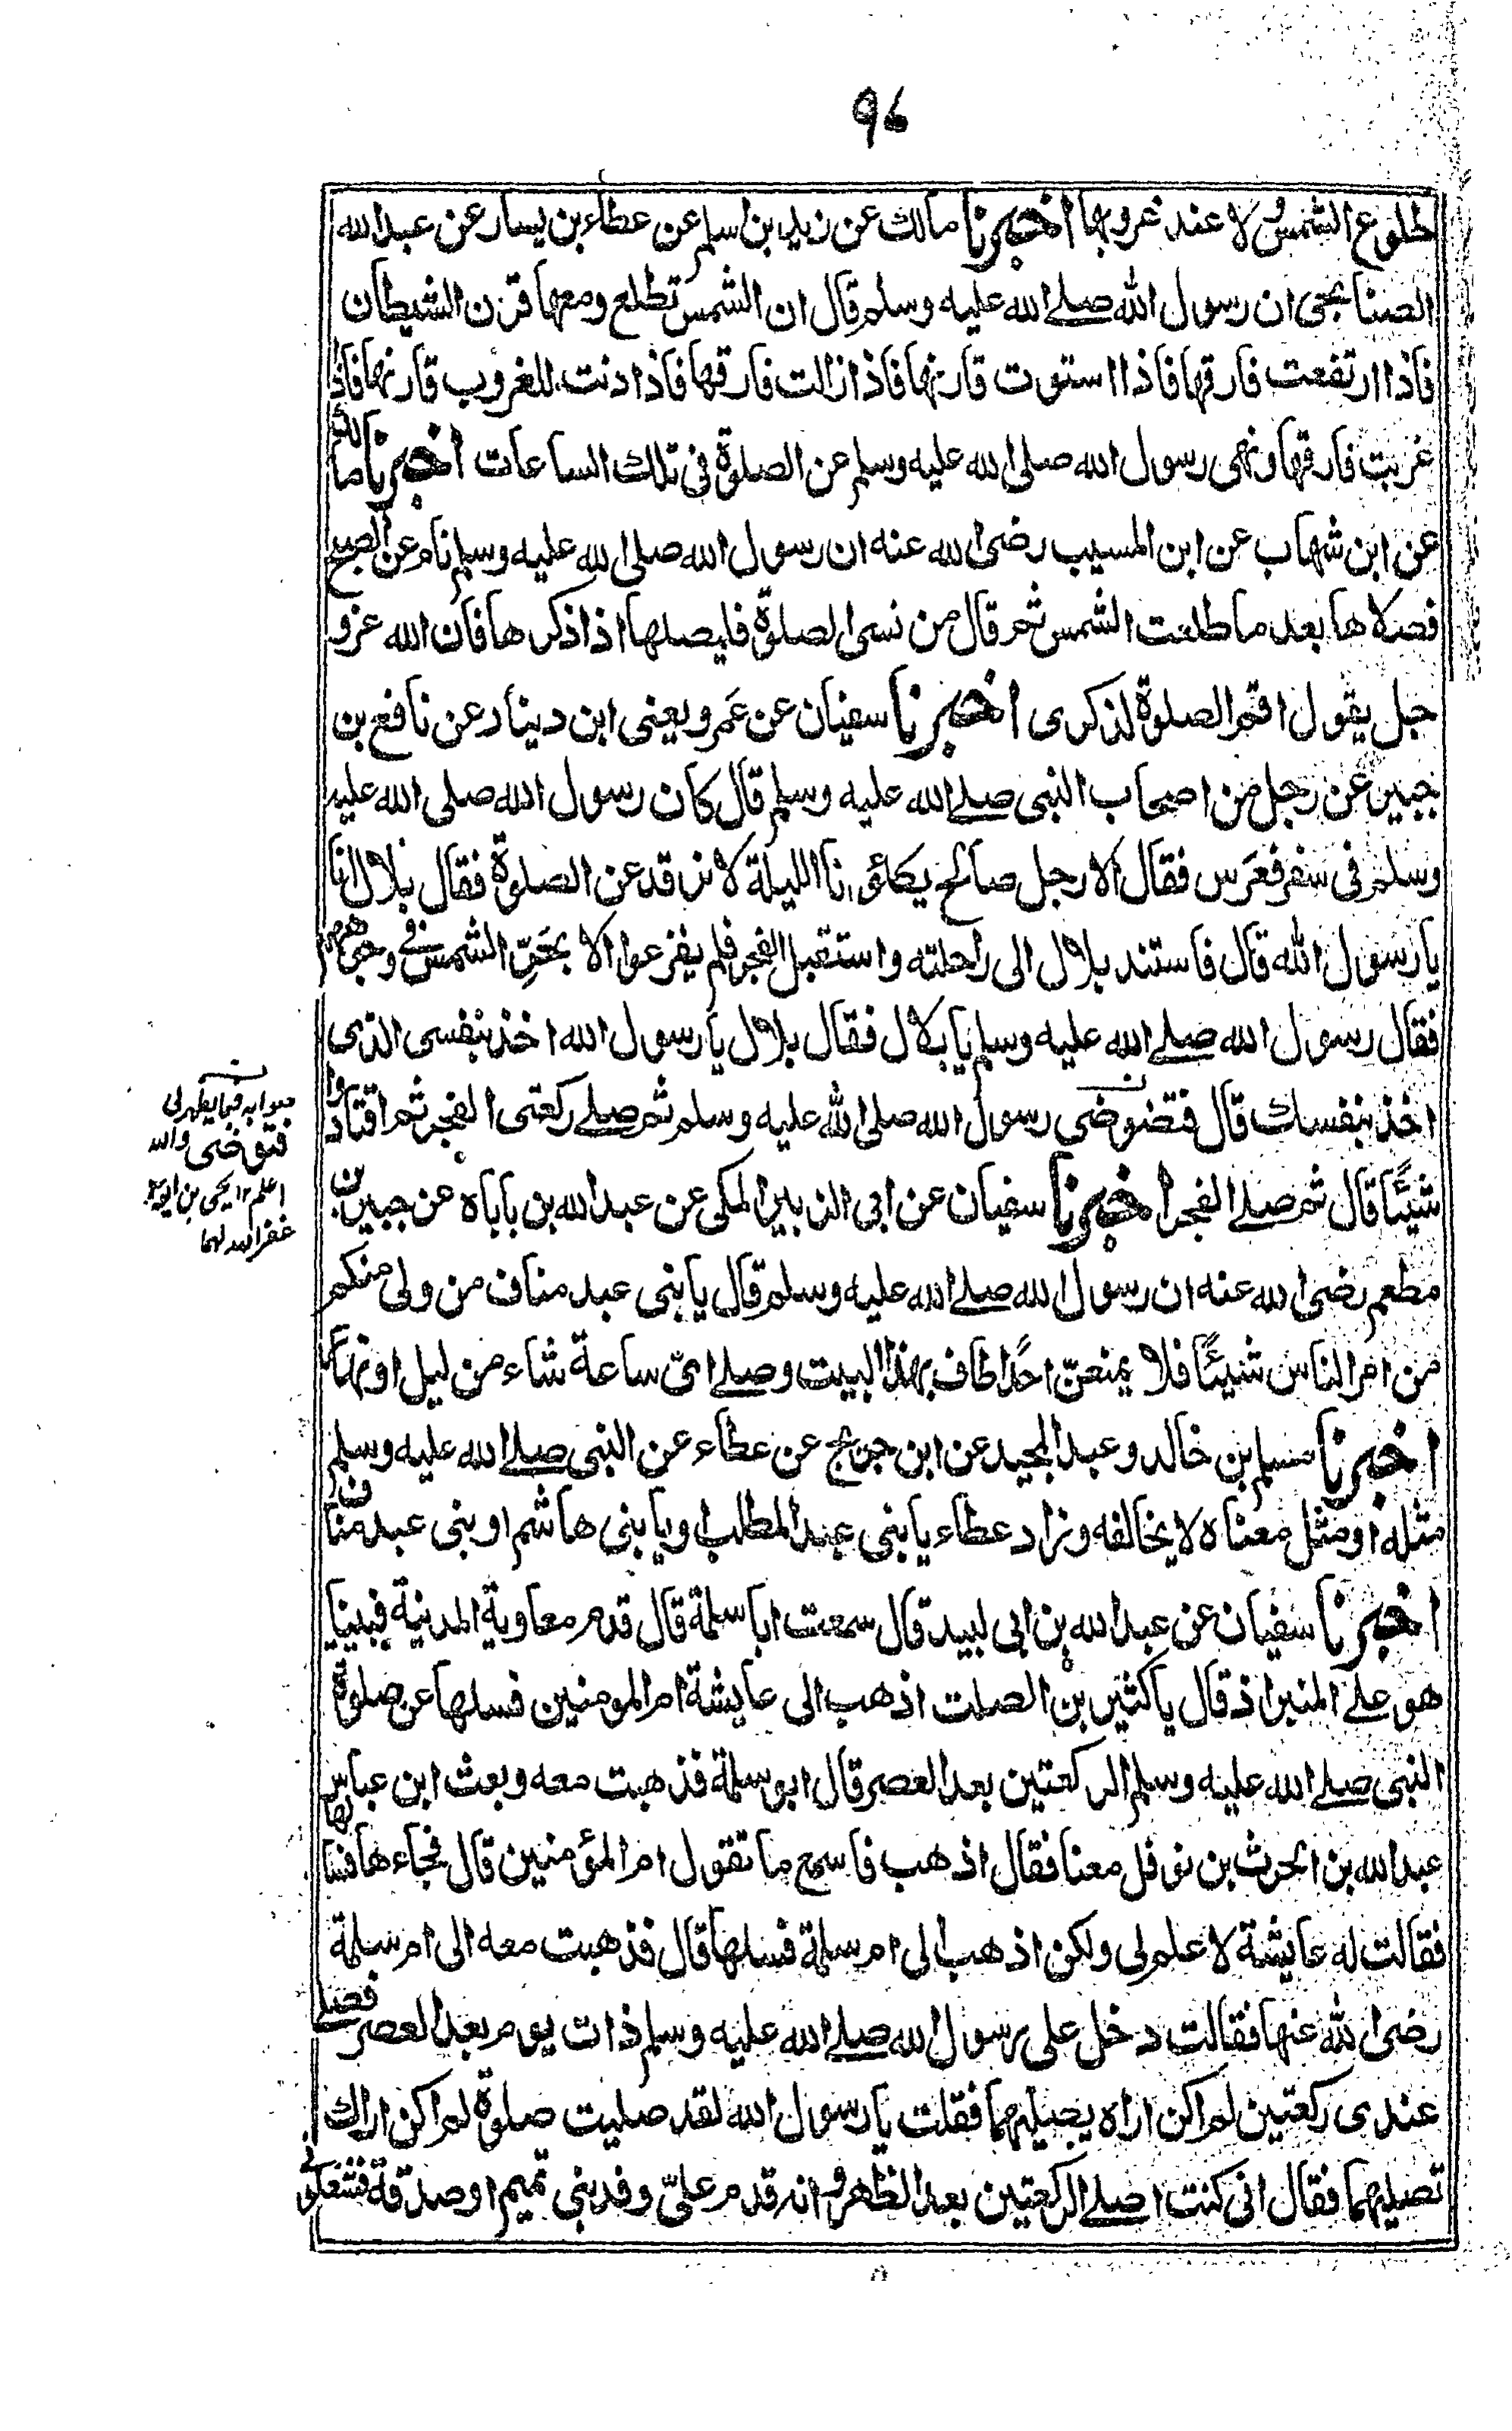 96
طلوع الشمس ولا عند غروبها اخبرنا مالك عن زيد بن اسلم عن عطاء بن يسار عن عبد الله
الصنابحى ان رسول الله صلے الله عليه وسلم قال ان الشمس تطلع ومعها قرن الشيطان
فاذا ارتفعت فارقها فاذا استوت قارنها فاذا زالت فارقها فاذا دنت للغروب قارنها فاذا
غربت فارقها ونهى رسول الله صلى الله عليه وسلم عن الصلوة فى تلك الساعات اخبرنا مالك
عن ابن شهاب عن ابن المسيب رضى الله عنه ان رسول الله صلى الله عليه وسلم نام عن الصبح
فصلاها بعد ما طلعت الشمس ثم قال من نسى الصلوة فليصلها اذا ذكرها فان الله عز و
جل يقول اقم الصلوة لذكرى اخبرنا سفيان عن عَمرو يعنى ابن دينار عن نافع بن
جبير عن رجل من اصحاب النبى صلے الله عليه وسلم قال كان رسول الله صلى الله عليه
وسلم فى سفر فعَرَس فقال الا رجل صالح يكلؤنا الليلة لا نرقد عن الصلوة فقال بلال انا
يا رسول الله قال فاستند بلال الى راحلته واستقبل الفجر فلم يفزعوا الا بحَرِّ الشمس فے وجوههم
فقال رسول الله صلے الله عليه وسلم يا بلال فقال بلال يا رسول الله اخذ بنفسى الذى
اخذ بنفسك قال فتضوضى رسول الله صلى الله عليه وسلم ثم صلے ركعتى الفجر ثم اقتادوا
شيئًا قال ثم صلے الفجر اخبرنا سفيان عن ابى الزبير المكى عن عبد الله بن باباه عن جبير بن
مطعم رضى الله عنه ان رسول الله صلے الله عليه وسلم قال يا بنى عبد مناف من ولى منكم
من امر الناس شيئًا فلا يمنعنّ احدًا طاف بهذا البيت وصلے اىّ ساعة شاء من ليل او نهار
اخبرنا مسلم بن خالد وعبد المجيد عن ابن جريج عن عطاء عن النبى صلے الله عليه وسلم
مثله او مثل معناه لا يخالفه وزاد عطاء يا بنى عبد المطلب او يا بنى هاشم او بنى عبد مناف
اخبرنا سفيان عن عبد الله بن ابى لبيد قال سمعت ابا سلمة قال قدم معاوية المدينة فبينا
هو علے المنبر اذ قال يا كثير بن الصلت اذهب الى عايشة ام المومنين فسلها عن صلوة
النبى صلے الله عليه وسلم الركعتين بعد العصر قال ابو سلمة فذهبت معه وبعث ابن عباس
عبد الله بن الحرث بن نوفل معنا فقال اذهب فاسمع ما تقول ام المؤمنين قال فجاءها فسالها
فقالت له عايشة لا علم لى ولكن اذهب الى ام سلمة فسلها قال فذهبت معه الى ام سلمة
رضى الله عنها فقالت دخل على رسول الله صلے الله عليه وسلم ذات يوم بعد العصر فصلے
عندى ركعتين لم اكن اراه يصليهما فقلت يا رسول الله لقد صليت صلوة لم اكن اراك
تصليهما فقال انى كنت اصلے الركعتين بعد الظهر وانه قدم علىّ وفد بنى تميم او صدقة فشغلونى
صوابه فيما يظهر لى
فتوضى والله
اعلم ١٢ يحيى بن ايوب
غفر الله لهما